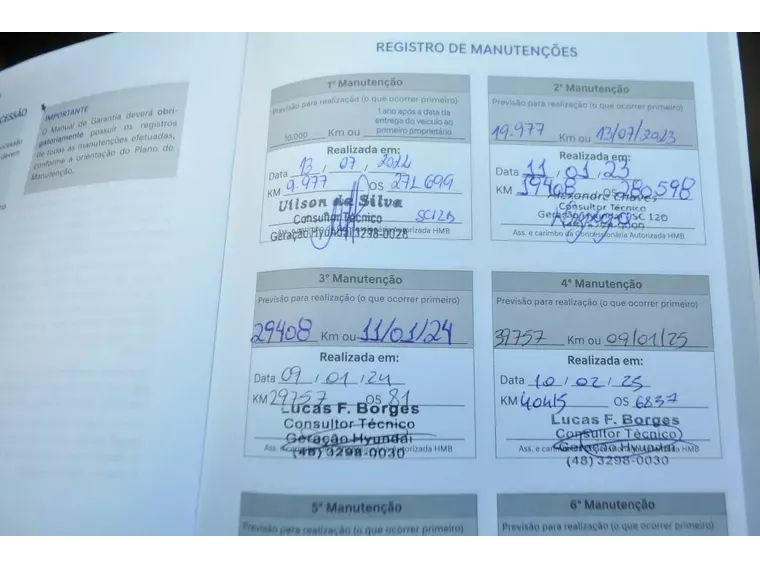 REGISTRO DE MANUTENÇÕES
IMPORTANTE
O Manual de Garantia deverá obri-
gatoriamente possuir os registros
de todas as manutenções efetuadas,
conforme a orientação do Plano de
Manutenção.
1ª Manutenção
Previsão para realização (o que ocorrer primeiro)
10.000 Km ou 1 ano após a data da
entrega do veículo ao
primeiro proprietário
Realizada em:
Data 13, 07, 2022
KM 9.977 OS 271699
Uilson da Silva
Consultor Técnico SC120
Geração Hyundai 3298-0028
2ª Manutenção
Previsão para realização (o que ocorrer primeiro)
19.977 Km ou 13/07/2023
Realizada em:
Data 11, 01, 23
KM 19408 OS 280598
Alexandre Chaves
Consultor Técnico
Geração Hyundai SC 120
Ass. e carimbo da Concessionária Autorizada HMB
3ª Manutenção
Previsão para realização (o que ocorrer primeiro)
29408 Km ou 11/01/24
Realizada em:
Data 09, 01, 24
KM 29757 OS 81
Lucas F. Borges
Consultor Técnico
Geração Hyundai
(48) 3298-0030
4ª Manutenção
Previsão para realização (o que ocorrer primeiro)
39757 Km ou 09/01/25
Realizada em:
Data 10, 02, 25
KM 40415 OS 6837
Lucas F. Borges
Consultor Técnico
Geração Hyundai
(48) 3298-0030
5ª Manutenção
Previsão para realização (o que ocorrer primeiro)
6ª Manutenção
Previsão para realização (o que ocorrer primeiro)